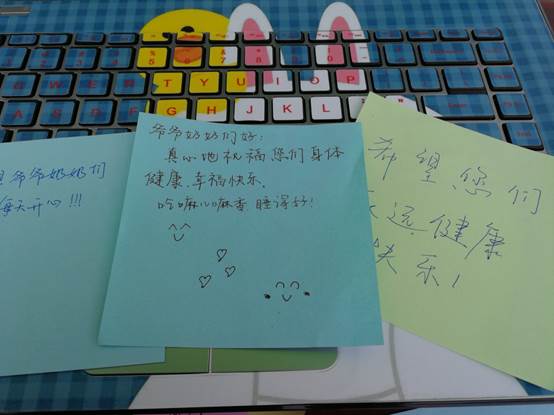 Q W E R T Y U I O P
F G H J K L
爷爷奶奶们
每天开心!!!
爷爷奶奶们好:
真心地祝福您们身体
健康、幸福快乐.
吃嘛嘛香 睡得好!
希望您们
永远健康
快乐!